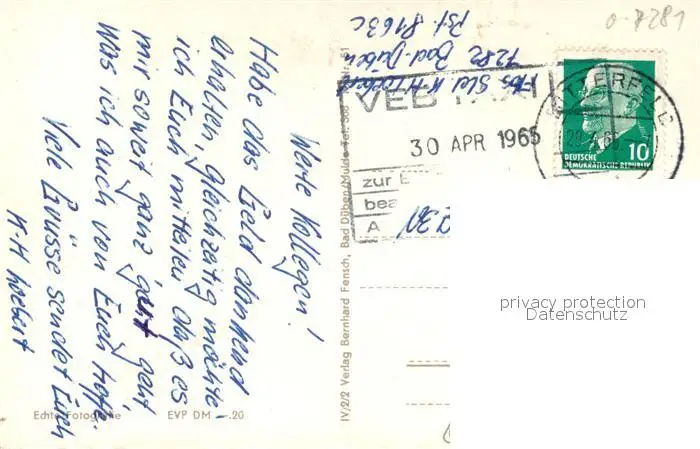 o-7281
Werte Kollegen!
Habe das Geld dankend
erhalten, gleichzeitig möchte
ich Euch mitteilen daß es
mir soweit ganz gut geht
was ich auch von Euch hoffe.
Viele Grüsse sendet Euch
K-H
Echte Fotografie
EVP DM —.20
IV/2/2 Verlag Bernhard Fensch, Bad Düben/Mulde Tel. 500
K-H
7282 Bad-Düben
Pst. 8163c
VEB
30 APR 1965
zur
bea
A
TTERFELD
10
DEUTSCHE
DEMOKRATISCHE REPUBLIK
privacy protection
Datenschutz